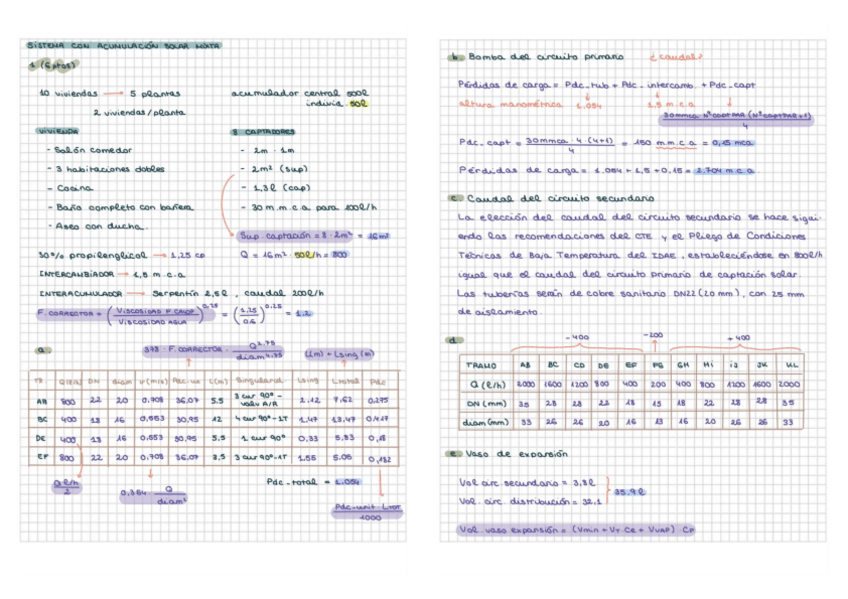 SISTEMA CON ACUMULACIÓN SOLAR MIXTA
10 viviendas → 5 plantas
2 viviendas/planta
acumulador central 500l
individ. 50l
VIVIENDA
- Salón comedor
- 3 habitaciones dobles
- Cocina
- Baño completo con bañera
- Aseo con ducha.
8 CAPTADORES
- 2m · 1m
- 2m² (sup)
- 1,3l (cap)
- 30 m.m.c.a para 100l/h
Sup. captación = 8 · 2m² = 16m²
Q = 16m² · 50l/h = 800
30% propilenglicol → 1,25 cp
INTERCAMBIADOR → 1,5 m.c.a.
INTERACUMULADOR → Serpentín 2,5l, caudal 200l/h
F. CORRECTOR = (VISCOSIDAD F.CALOP / VISCOSIDAD AGUA)^0,25 = (1.25 / 0.6)^0.25 = 1.2
a 378 · F.CORRECTOR · Q^1.75 / diam^4.75
L(m) + Lsing(m)
TR Q(l/h) DN diam v(m/s) L(m) Singularid. Lsing Ltotal Pdc
AB 800 22 20 0,708 36,07 5.5 3 cur 90º - valv A/R 2.12 7,62 0,275
BC 400 18 16 0,553 30,95 12 4 cur 90º-1T 1,47 13,47 0,417
DE 400 18 16 0,553 30,95 5,5 1 cur 90º 0,33 5.83 0,18
EF 800 22 20 0.708 36,07 3,5 3 cur 90º-1T 1.55 5.05 0,182
Q l/h / 2
0,354 · Q / diam²
Pdc_total = 1.054
Pdc_unit · Ltot / 1000
b Bomba del circuito primario ¿caudal?
Pérdidas de carga = Pdc_tub + Pdc_intercamb. + Pdc_capt
altura manométrica 1.054 1.5 m.c.a
30mmca · NºCAPTPAR (NºCAPTPAR+1) / 4
Pdc_capt = 30mmca · 4 (4+1) / 4 = 150 m.m.c.a = 0,15 mca
Pérdidas de carga = 1.054 + 1,5 + 0.15 = 2.704 m.c.a
c Caudal del circuito secundario
La elección del caudal del circuito secundario se hace sigui-
endo las recomendaciones del CTE y el Pliego de Condiciones
Técnicas de Baja Temperatura del IDAE, estableciéndose en 800l/h
igual que el caudal del circuito primario de captación solar.
Las tuberías serán de cobre sanitario DN22 (20 mm), con 25 mm
de aislamiento.
d -400 -200 +400
TRAMO AB BC CD DE EF FG GH HI IJ JK KL
Q (l/h) 2000 1600 1200 800 400 200 400 800 1200 1600 2000
DN (mm) 35 28 28 22 18 15 18 22 28 28 35
diam (mm) 33 26 26 20 16 13 16 20 26 26 33
e Vaso de expansión
Vol circ secundario = 3,8l
Vol. circ distribución = 32.1
35,9l
Vol. vaso expansión = (Vmin + VT Ce + VVAP) CP